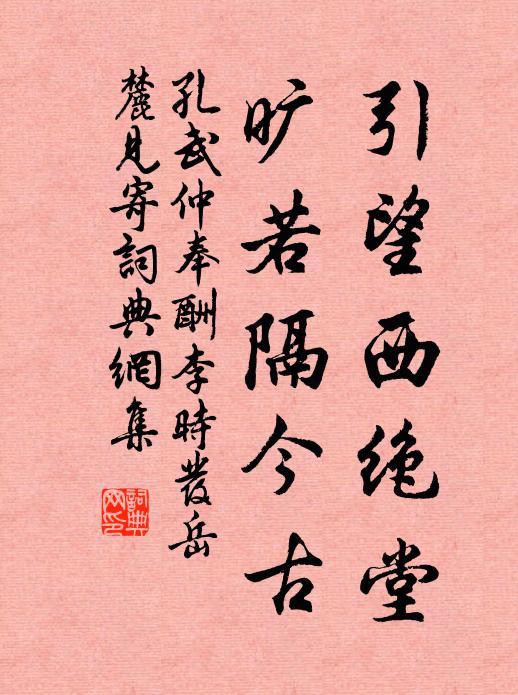 引望西绝堂
旷若隔今古
孔武仲奉酬李時發岳
麓見寄詞典網集
詞典
网印